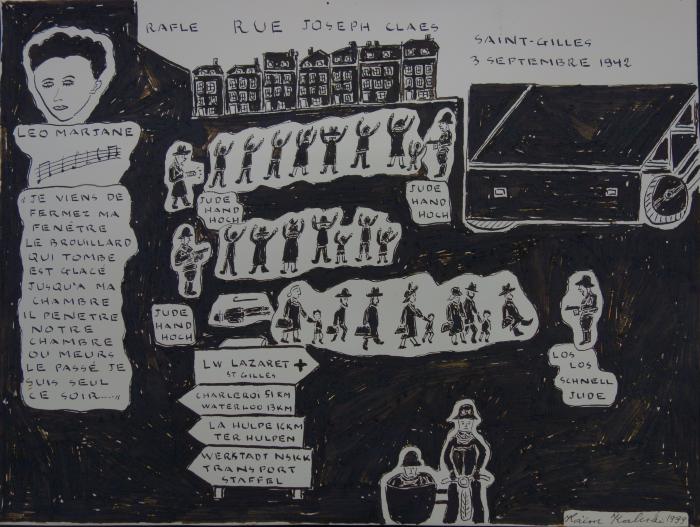 RAFLE RUE JOSEPH CLAES
SAINT-GILLES
3 SEPTEMBRE 1942
LEO MARJANE
"JE VIENS DE
FERMEZ MA
FENÊTRE
LE BROUILLARD
QUI TOMBE
EST GLACÉ
JUSQU'A MA
CHAMBRE
IL PENETRE
NOTRE
CHAMBRE
OU MEURS
LE PASSÉ JE
SUIS SEUL
CE SOIR....."
JUDE
HAND
HOCH
JUDE
HAND
HOCH
JUDE
HAND
HOCH
LOS
LOS
SCHNELL
JUDE
LW LAZARET +
ST GILLES
CHARLEROI 51 KM
WATERLOO 13KM
LA HULPE 12KM
TER HULPEN
WERSTADT NSKK
TRANSPORT
STAFFEL